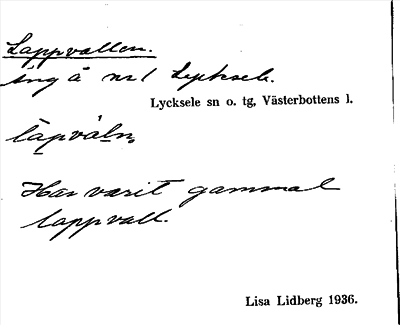 Lappvallen.
äng å nr 1 Lycksele.
Lycksele sn o. tg, Västerbottens l.
lapváln,
Har varit gammal
lappvall.
Lisa Lidberg 1936.